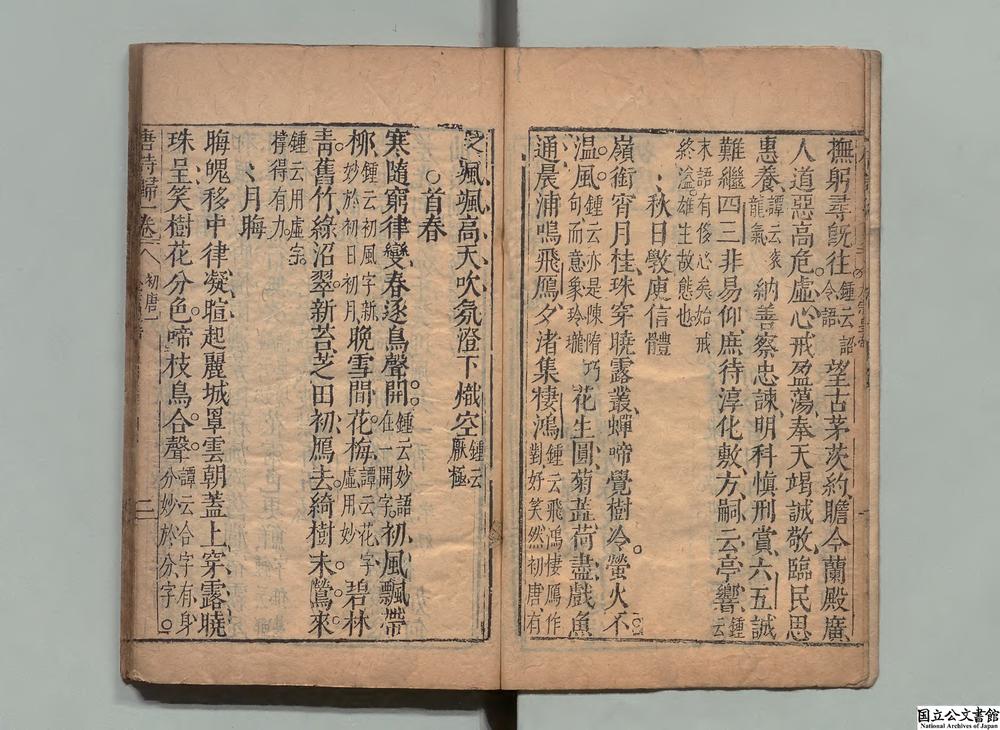 撫躬尋既往鍾云詔令語望古茅茨約瞻今蘭殿廣
人道惡高危虛心戒盈蕩奉天竭誠敬臨民思
惠養譚云袞龍氣納善察忠諫明科慎刑賞六五誠
難繼四三非易仰庶待淳化敷方嗣云亭響鍾云
末語有侈心矣始戒終溢雄生故態也
秋日斆庾信體
嶺銜宵月桂珠穿曉露叢蟬啼覺樹冷螢火不
溫風鍾云亦是陳隋巧句而意象玲瓏花生圓菊蕋荷盡戲魚
通晨浦鳴飛鴈夕渚集棲鴻鍾云飛鴻棲鴈作對好笑然初唐有
之颯颯高天吹氛澄下熾空鍾云厭極
○首春
寒隨窮律變春逐鳥聲開鍾云妙語在一開字初風飄帶
柳鍾云初風字新妙於初日初月晚雪間花梅譚云花字虛用妙碧林
青舊竹綠沼翠新苔芝田初鴈去綺樹未鶯來
鍾云用虛字撐得有力
月晦
晦魄移中律凝暄起麗城罩雲朝蓋上穿露曉
珠呈笑樹花分色啼枝鳥合聲譚云合字有身分妙於分字
唐詩歸卷一 初唐一 二
国立公文書館
National Archives of Japan